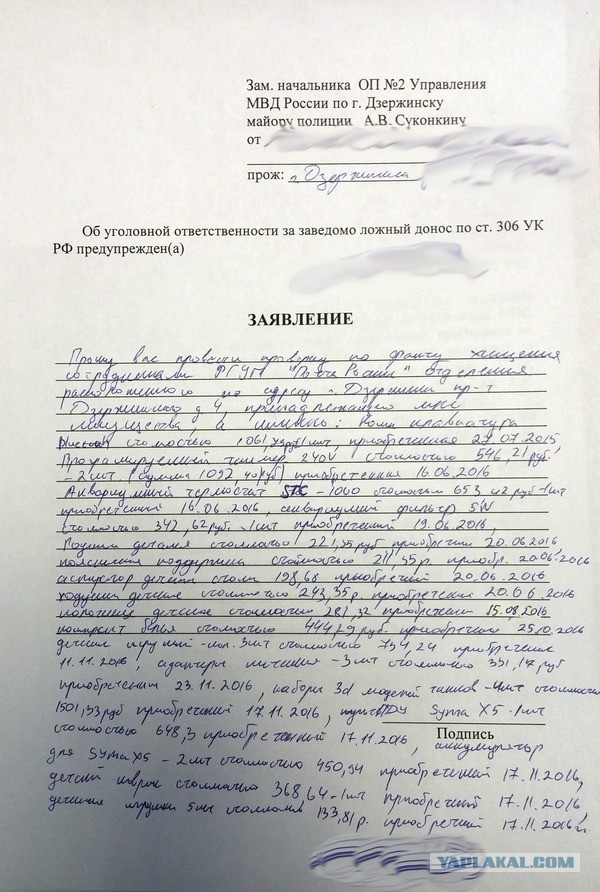 Зам. начальника ОП №2 Управления
МВД России по г. Дзержинску
майору полиции А.В. Суконкину
от
прож: г. Дзержинск
Об уголовной ответственности за заведомо ложный донос по ст. 306 УК
РФ предупрежден(а)
ЗАЯВЛЕНИЕ
Прошу вас провести проверку по факту хищения
сотрудниками ФГУП "Почта России" отделения
расположенного по адресу г. Дзержинск пр-т
Дзержинского д 4, принадлежащего мне
имущества а именно: клавиатура
Bluetooth стоимостью 1061, руб/1шт, приобретенная 29.07.2015,
Програмируемый таймер 240V стоимостью 546,21 руб-
-2шт. (сумма 1092,40 руб) приобретенная 16.06.2016
Аквариумный термостат STC-1000 стоимостью 653,42 руб-1шт
приобретенный 16.06.2016, аквариумный фильтр 5W
стоимостью 342,62 руб.-1шт приобретенный 19.06.2016,
детская стоимостью 221,35 руб приобретен 20.06.2016
поясничная поддержка стоимостью 211,45 р. приобр. 20.06.2016
аспиратор детский стоим 198,68 приобретен 20.06.2016
ходунки детские стоимостью 243,35 р. приобретен 20.06.2016
полотенце детское стоимостью 281,32 приобретен 15.08.2016
комплект белья стоимостью 444,29 руб. приобретен 25.10.2016
детский 3шт стоимостью 734,24 приобретен
11.11.2016, адаптеры питания -3шт стоимостью 331,17 руб
приобретенные 23.11.2016, наборы 3d моделей танков -4шт стоимостью
1501,33 руб приобретенный 17.11.2016, пульт ДУ Syma X5 -1шт
стоимостью 648,3 приобретенный 17.11.2016, аккумулятор
Подпись
для Syma X5 - 2шт стоимостью 450,94 приобретенный 17.11.2016,
детский коврик стоимостью 368,64-1шт приобретенный 17.11.2016,
детские игрушки 5шт стоимостью 133,81 р. приобретенный 17.11.2016г.
YAPLAKAL.COM